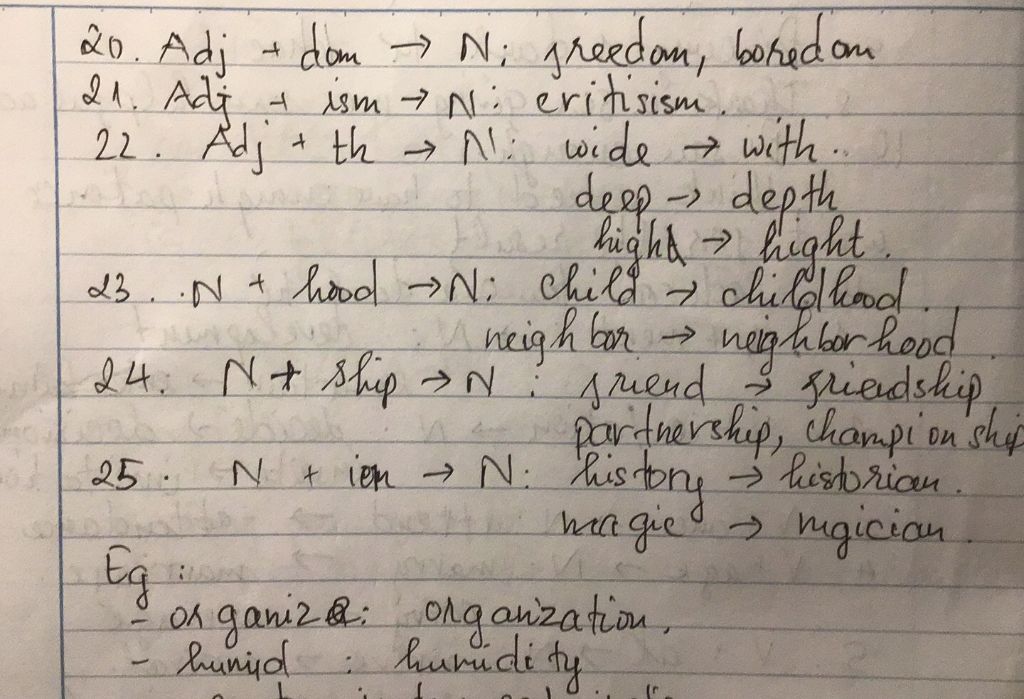 20. Adj + dom → N: freedom, boredom
21. Adj + ism → N: critisism.
22. Adj + th → N: wide → with..
deep → depth
high → hight.
23. N + hood → N: child → childhood.
neighbor → neighborhood.
24. N + ship → N: friend → friendship
partnership, championship
25. N + ien → N: history → historian.
magic → mgician.
Eg:
- organize: organization.
- humid: humidity